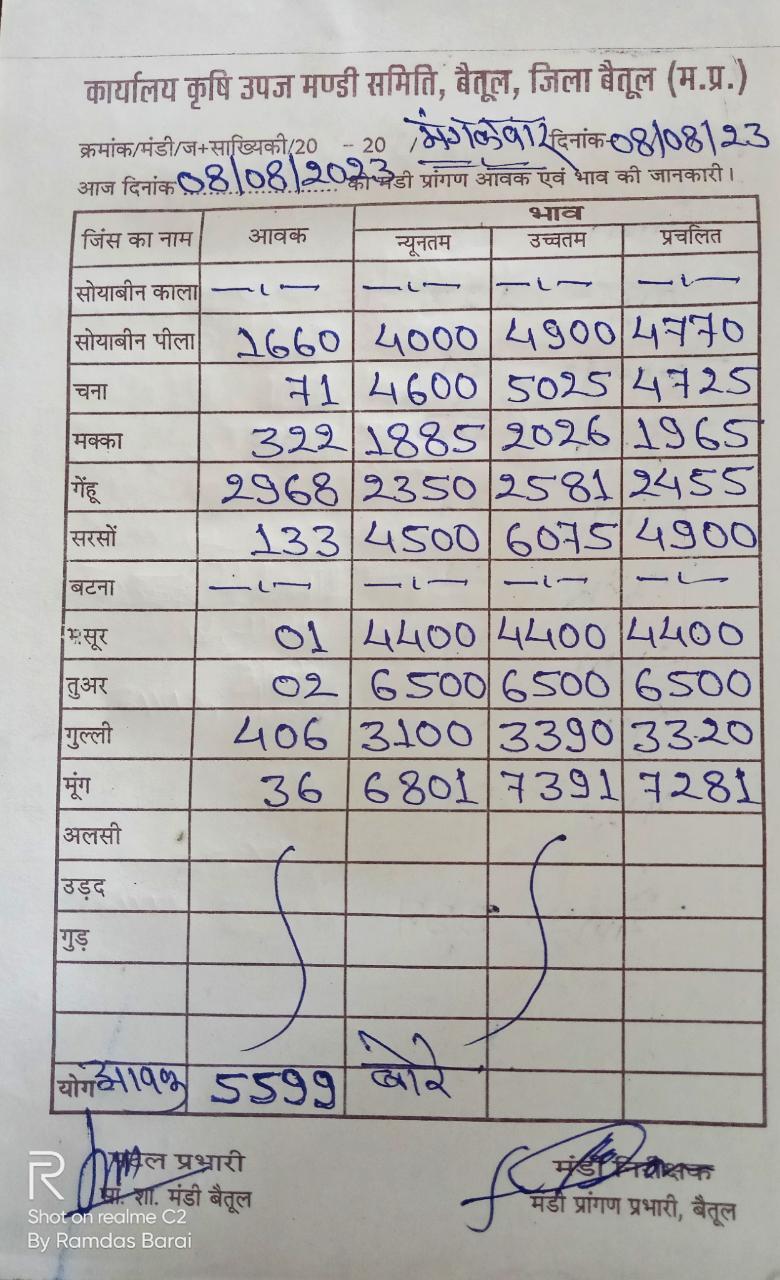 कार्यालय कृषि उपज मण्डी समिति, बैतूल, जिला बैतूल (म.प्र.)
क्रमांक/मंडी/ज+साख्यिकी/20 - 20 / मंगलवार दिनांक 08/08/23
आज दिनांक 08/08/2023 को मंडी प्रांगण आवक एवं भाव की जानकारी।
भाव
जिंस का नाम आवक न्यूनतम उच्चतम प्रचलित
सोयाबीन काला —ı— —ı— —ı— —ı—
सोयाबीन पीला 1660 4000 4900 4770
चना 71 4600 5025 4725
मक्का 322 1885 2026 1965
गेंहू 2968 2350 2581 2455
सरसों 133 4500 6075 4900
बटना —ı— —ı— —ı— —ı—
मसूर 01 4400 4400 4400
तुअर 02 6500 6500 6500
गुल्ली 406 3100 3390 3320
मूंग 36 6801 7391 7281
अलसी
उड़द
गुड़
योग आवक 5599 बोरे
प्रभारी मंडी निरीक्षक
शा. मंडी बैतूल मंडी प्रांगण प्रभारी, बैतूल
R
Shot on realme C2
By Ramdas Barai